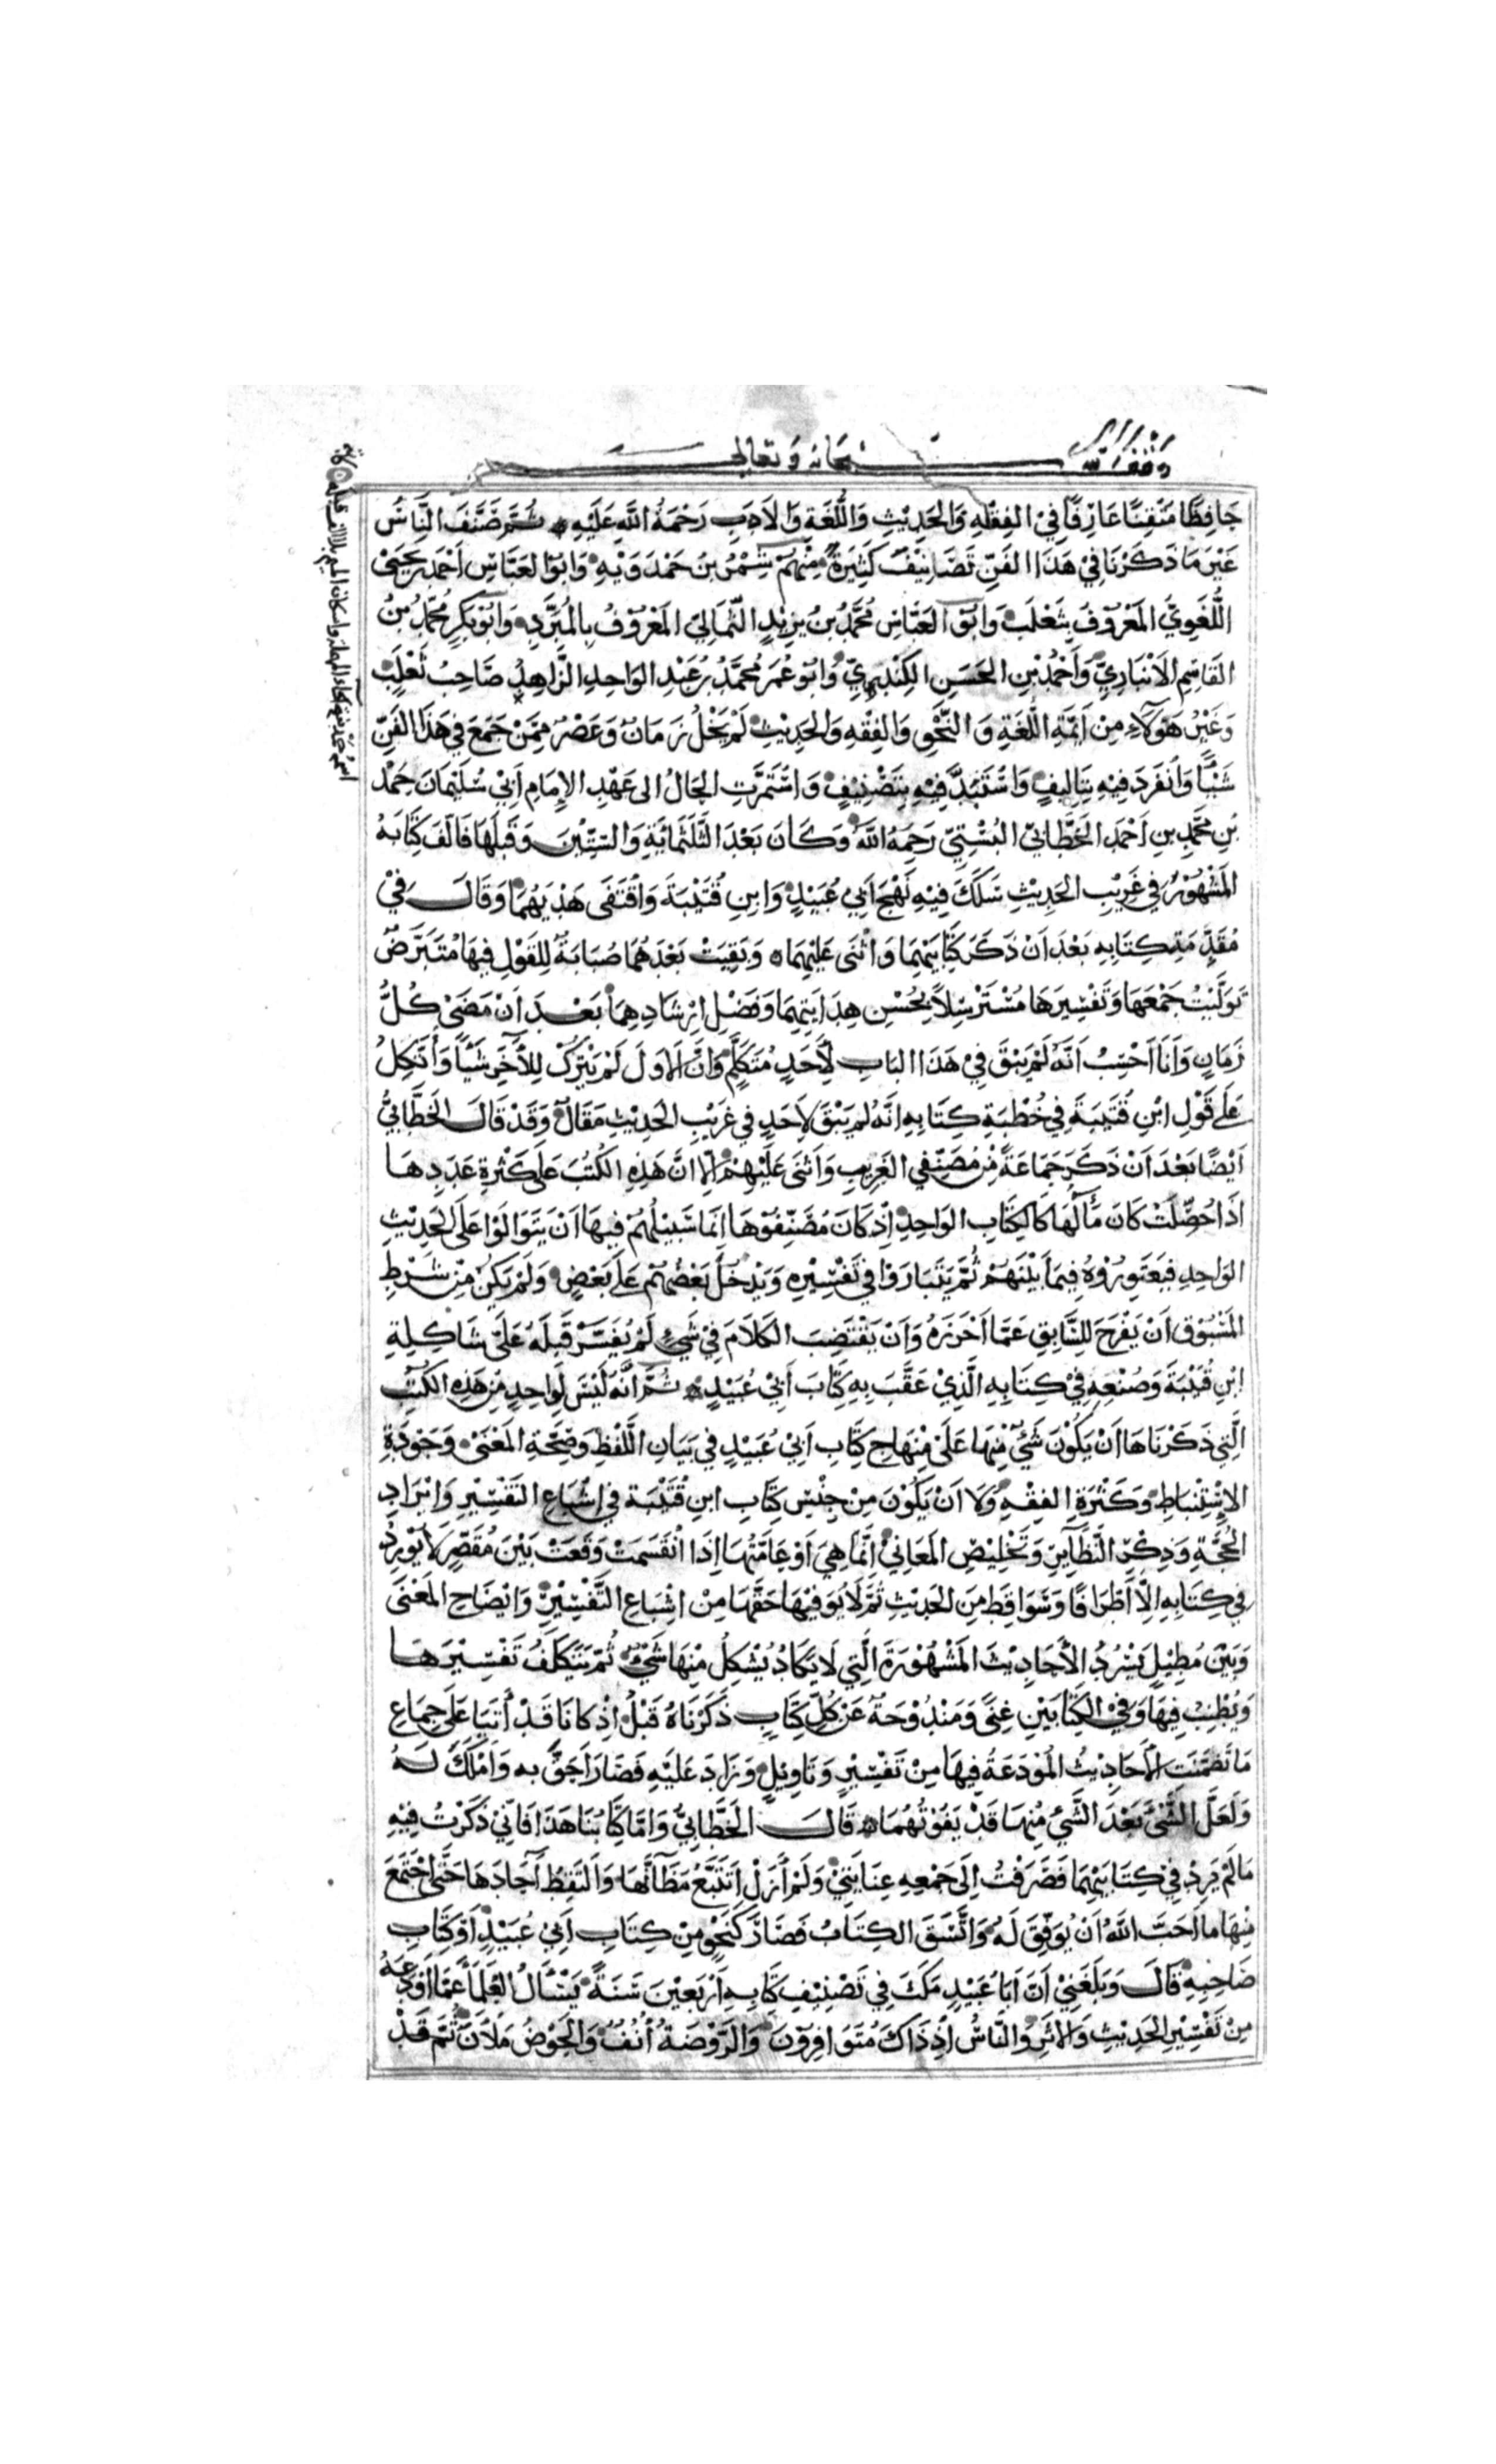 وقف لله سبحانه وتعالى
حَافِظًا مُتْقِنًا عَارِفًا فِي الفِقْهِ وَالحَدِيْثِ وَاللُّغَةِ وَالأَدَبِ رَحْمَةُ اللَّهِ عَلَيْهِ ثُمَّ صَنَّفَ النَّاسُ
غَيْرَ مَا ذَكَرْنَا فِيْ هَذَا الفَنِّ تَصَانِيْفَ كَثِيْرَةً مِنْهُمْ شِمْرُ بنُ حَمْدَوَيْهِ وَابُوْ العَبَّاسِ اَحْمَد بن يَحْيَى
اللُّغَوِيُّ المَعْرُوْفُ بِثَعْلَبَ وَابُوْ العَبَّاسِ مُحَمَّدُ بْنُ يَزِيْدٍ الثُّمَالِيّ المَعْرُوْفُ بِالمُبَرَّدِ وَابُوْ بَكْرٍ مُحَمَّدُ بْنُ
القَاسِمِ الاَنْبَارِيّ وَاَحْمَدُ بْنِ الحَسَنِ الكِنْدِيّ وَابُوْ عُمَرَ مُحَمَّدُ بْنُ عَبْدِ الوَاحِدِ الزَّاهِدُ صَاحِبُ ثَعْلَبَ
وَغَيْرُ هَؤُلآءِ مِنْ اَئِمَّةِ اللُّغَةِ وَالنَّحْوِ وَالفِقْهِ وَالحَدِيْثِ لَمْ يَخْلُ زَمَانٌ وَعَصْرٌ مِمَّنْ جَمَعَ فِي هَذَا الفَنِّ
شَيْئًا وَانْفَرَدَ فِيْهِ بِتَالِيفٍ وَاسْتَبَدَّ فِيْهِ بِتَصْنِيْفٍ وَاسْتَمَرَّتِ الحَالُ الى عَهْدِ الإمَامِ اَبِيْ سُلَيْمَانَ حَمْد
بْنِ مُحَمَّدِ بنِ اَحْمَدَ الخَطَّابِيّ البُسْتِيّ رَحِمَهُ اللَّهُ وَكَانَ بَعْدَ الثَّلَثمائَةِ وَالسِّتِّيْنَ وَقَبْلَهَا فَالَفَ كِتَابَهُ
المَشْهُوْرَ فِي غَرِيْبِ الحَدِيْثِ سَلَكَ فِيْهِ نَهْجَ اَبِيْ عُبَيْدٍ وَابنِ قُتَيْبَةَ وَاقْتَفَى هَدْيَهُمَا وَقَالَ فِيْ
مُقَدِّمَةِ كِتَابِهِ بَعْدَ اَنْ ذَكَرَ كِتَابَيْهِمَا وَاثْنَى عَلَيْهِمَا وَبَقِيَتْ بَعْدَهُمَا صُبَابَةٌ لِلقَوْلِ فِيْهَا مُتَبَرَّضٌ
تَوَلَّيْتُ جَمْعَهَا وَتَفْسِيْرَهَا مُسْتَرْسِلاً بِحُسْنِ هِدَايَتِهِمَا وَفَضْلِ اِرْشَادِهِمَا بَعْدَ اَنْ مَضَى كُلُّ
زَمَانٍ وَاَنَا اَحْسِبُ اَنَّهُ لَمْ يَبْقَ فِيْ هَذَا البَابِ لأَحَدٍ مُتَكَلَّمٌ وَاَنَّ الاَوَّلَ لَمْ يَتْرُكْ لِلآخِرِ شَيْئًا وَاَتَّكِلُ
عَلَى قَوْلِ ابْنِ قُتَيْبَةَ فِي خُطْبَةِ كِتَابِهِ اَنَّهُ لم يَبْقَ لاَحَدٍ فِي غَرِيْبِ الحَدِيْثِ مَقَالٌ وَقَدْ قَالَ الخَطَّابِيُّ
اَيْضًا بَعْدَ اَنْ ذَكَرَ جَمَاعَةً مِنْ مُصَنِّفِي الغَرِيْبِ وَاَثْنَى عَلَيْهِمْ اِلا اَنَّ هَذِهِ الكُتُبَ عَلَى كَثْرَةِ عَدَدِهَا
اذَا حُصِّلَتْ كَانَ مَآلُهَا كَالكِتَابِ الوَاحِدِ اِذْ كَانَ مُصَنِّفُوْهَا اِنَّمَا سَبِيْلُهُمْ فِيهَا اَنْ يَتَوَالَوْا عَلَى الحَدِيْثِ
الوَاحِدِ فَيَعْتَوِرُوْهُ فِيمَا بَيْنَهُمْ ثُمَّ يَتَبَارَوْا فِي تَفْسِيْرِهِ وَيَدْخُلَ بَعْضُهُمْ عَلَى بَعْضٍ وَلَمْ يَكُنْ مِنْ شَرْطِ
المَسْبُوْقِ اَنْ يَفْرَجَ لِلسَّابِقِ عَمَّا اَحْرَزَهُ وَاَنْ يَقْتَضِبَ الكَلاَمَ فِيْ شَيْءٍ لَمْ يُفَسَّرْ قَبْلَهُ عَلَى شَاكِلَةِ
ابْنِ قُتَيْبَةَ وَصُنْعِهِ فِيْ كِتَابِهِ الَّذِيْ عَقَّبَ بِهِ كِتَابَ اَبِيْ عُبَيْدٍ ثُمَّ اَنَّهُ لَيْسَ لِوَاحِدٍ مِنْ هَذِهِ الكُتُبِ
الَّتِي ذَكَرْنَاهَا اَنْ يَكُوْنَ شَيْءٌ مِنْهَا عَلَى مِنْهَاجِ كِتَابِ اَبِيْ عُبَيْدٍ فِي بَيَانِ اللَّفْظِ وَصِحَّةِ المَعْنَى وَجَوْدَةِ
الإِسْتِنْبَاطِ وَكَثْرَةِ الفِقْهِ وَلاَ اَنْ يَكُوْنَ مِنْ جِنْسِ كِتَابِ ابنِ قُتَيْبَةَ فِي اِشْبَاعِ التَّفْسِيْرِ وَاِيْرَادِ
الحُجَّةِ وَذِكْرِ النَّظَآيِرِ وَتَخْلِيْصِ المَعَانِيْ اِنَّمَا هِيَ اَوْ عَامَّتُهَا اِذَا انْقَسَمَتْ وَقَعَتْ بَيْنَ مُقَصِّرٍ لاَ يُوْرِدُ
فِي كِتَابِهِ اِلاَّ اَطْرَافًا وَسَوَاقِطَ مِنَ الحَدِيْثِ ثُمَّ لاَ يُوَفِّيْهَا حَقَّهَا مِنْ اِشْبَاعِ التَّفْسِيْرِ وَاِيْضَاحِ المَعْنَى
وَبَيْنَ مُطِيْلٍ يَسْرُدُ الأَحَادِيْثَ المَشْهُوْرَةَ الَّتِي لاَ يَكَادُ يُشْكِلُ مِنْهَا شَيْءٌ ثُمَّ يَتَكَلَّفُ تَفْسِيْرَهَا
وَيُطْنِبُ فِيهَا وَفِي الكِتَابَيْنِ غِنًى وَمَنْدُوْحَةٌ عَنْ كُلِّ كِتَابٍ ذَكَرْنَاهُ قَبْلُ اِذْ كَانَا قَدْ اَتَيَا عَلَى جِمَاعِ
مَا تَضَمَّنَتِ الأَحَادِيْثُ المُوْدَعَةُ فِيهَا مِنْ تَفْسِيْرٍ وَتَاوِيْلٍ وَزَادَ عَلَيْهِ فَصَارَ اَحَقَّ بِهِ وَاَمْلَكَ لَهُ
وَلَعَلَّ الشَّيْءَ بَعْدَ الشَّيْءِ مِنْهَا قَدْ يَفُوْتُهُمَا قَالَ الخَطَّابِيُّ وَامَّا كِتَابُنَا هَذَا فَاِنِّيْ ذَكَرْتُ فِيْهِ
مَا لَمْ يَرِدْ فِي كِتَابَيْهِمَا فَصَرَفْتُ اِلَى جَمْعِهِ عِنَايَتِيْ وَلَمْ اَزَلْ اَتَتَبَّعُ مَظَآنَّهَا وَاَلْتَقِطُ آحَادَهَا حَتَّى اجْتَمَعَ
مِنْهَا مَا اَحَبَّ اللَّهُ اَنْ يُوَفِّقَ لَهُ وَاتَّسَقَ الكِتَابُ فَصَارَ كَنَحْوٍ مِنْ كِتَابِ اَبِيْ عُبَيْدٍ اَوْ كِتَابِ
صَاحِبِهِ قَالَ وَبَلَغَنِيْ اَنَّ اَبَا عُبَيْدٍ مَكَثَ فِي تَصْنِيْفِ كِتَابِهِ اَرْبَعِيْنَ سَنَةً يَسْأَلُ العُلَمَآءَ عَمَّا اَوْدَعَهُ
مِنْ تَفْسِيْرِ الحَدِيْثِ وَالاَثَرِ وَالنَّاسُ اِذْ ذَاكَ مُتَوَافِرُوْنَ وَالرَّوْضَةُ اُنُفٌ وَالحَوْضُ مَلآنُ ثُمَّ قَدْ